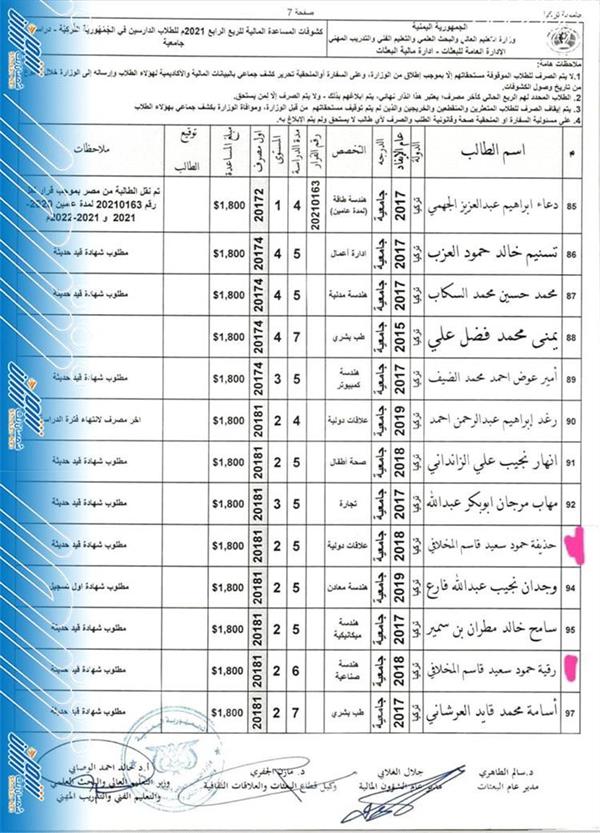 صفحة 7
الجمهورية اليمنية
وزارة التعليم العالي والبحث العلمي والتعليم الفني والتدريب المهني
الإدارة العامة للبعثات - ادارة مالية البعثات
كشوفات المساعدة المالية للربع الرابع 2021م للطلاب الدارسين في الجمهورية التركية -
جامعية
ملاحظات هامة:
1. لا يتم الصرف للطلاب الموقوفة مستحقاتهم إلا بموجب إطلاق من الوزارة، وعلى السفارة أو الملحقية تحرير كشف جماعي بالبيانات المالية والاكاديمية لهؤلاء الطلاب وإرساله إلى الوزارة خلال
من تاريخ وصول الكشوفات.
2. الطلاب المحدد لهم الربع الحالي كآخر مصرف: يعتبر هذا انذار نهائي، يتم ابلاغهم بذلك - ولا يتم الصرف إلا لمن يستحق.
3. يتم إيقاف الصرف للطلاب المتعثرين والمنقطعين والخريجين والذين لم يتم توقيف مستحقاتهم من قبل الوزارة، وموافاة الوزارة بكشف جماعي بهؤلاء الطلاب
4. على مسئولية السفارة او الملحقية صحة وقانونية الطلب والصرف لأي طالب لا يستحق ولم يتم الابلاغ به.
م اسم الطالب الدولة عام الإيفاد الدرجه التخصص رقم القرار مدة الدراسة المستوى اول مصرف مبلغ المساعدة توقيع الطالب ملاحظات
85 دعاء ابراهيم عبدالعزيز الجهمي تركيا 2017 جامعية هندسة طاقة (لمدة عامين) 20210163 4 1 20172 $1,800 تم نقل الطالبة من مصر بموجب قرار
رقم 20210163 لمدة عامين 2020-
2021 و 2021-2022م
86 تسنيم خالد حمود العزب تركيا 2017 جامعية ادارة أعمال 5 4 20174 $1,800 مطلوب شهادة قيد حديثة
87 محمد حسين محمد السكاب تركيا 2017 جامعية هندسة مدنية 5 4 20174 $1,800 مطلوب شهادة قيد حديثة
88 يمنى محمد فضل علي تركيا 2015 جامعية طب بشري 7 4 20174 $1,800 مطلوب شهادة قيد حديثة
89 أمير عوض احمد محمد الضيف تركيا 2017 جامعية هندسة كمبيوتر 5 3 20174 $1,800 مطلوب شهادة قيد حديثة
90 رغد إبراهيم عبدالرحمن احمد تركيا 2019 جامعية علاقات دولية 4 2 20181 $1,800 اخر مصرف لانتهاء فترة الدراسة
91 انهار نجيب علي الزانداني تركيا 2018 جامعية صحة أطفال 5 2 20181 $1,800 مطلوب شهادة قيد حديثة
92 مهاب مرجان ابوبكر عبدالله تركيا 2017 جامعية تجارة 5 3 20181 $1,800 مطلوب شهادة قيد حديثة
حذيفة حمود سعيد قاسم المخلافي تركيا 2018 جامعية علاقات دولية 5 2 20181 $1,800 مطلوب شهادة قيد حديثة
94 وجدان نجيب عبدالله فارع تركيا 2019 جامعية هندسة معادن 5 2 20181 $1,800 مطلوب شهادة اول تسجيل
95 سامح خالد مطران بن سمير تركيا 2017 جامعية هندسة ميكانيكية 5 2 20181 $1,800 مطلوب شهادة قيد حديثة
رقية حمود سعيد قاسم المخلافي تركيا 2018 جامعية هندسة صناعية 6 2 20181 $1,800 مطلوب شهادة قيد حديثة
97 أسامة محمد قايد العرشاني تركيا 2017 جامعية طب بشري 7 2 20181 $1,800 مطلوب شهادة قيد حديثة
د. سالم الطاهري
مدير عام البعثات
جلال الغلابي
مدير عام الشؤون المالية
د. مازن الجفري
وكيل قطاع البعثات والعلاقات الثقافية
أ.د خالد احمد الوصابي
وزير التعليم العالي والبحث العلمي
والتعليم الفني والتدريب المهني